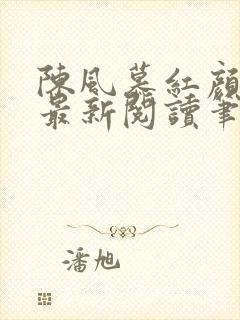 陳風慕紅顏
最新閱讀筆
潘旭